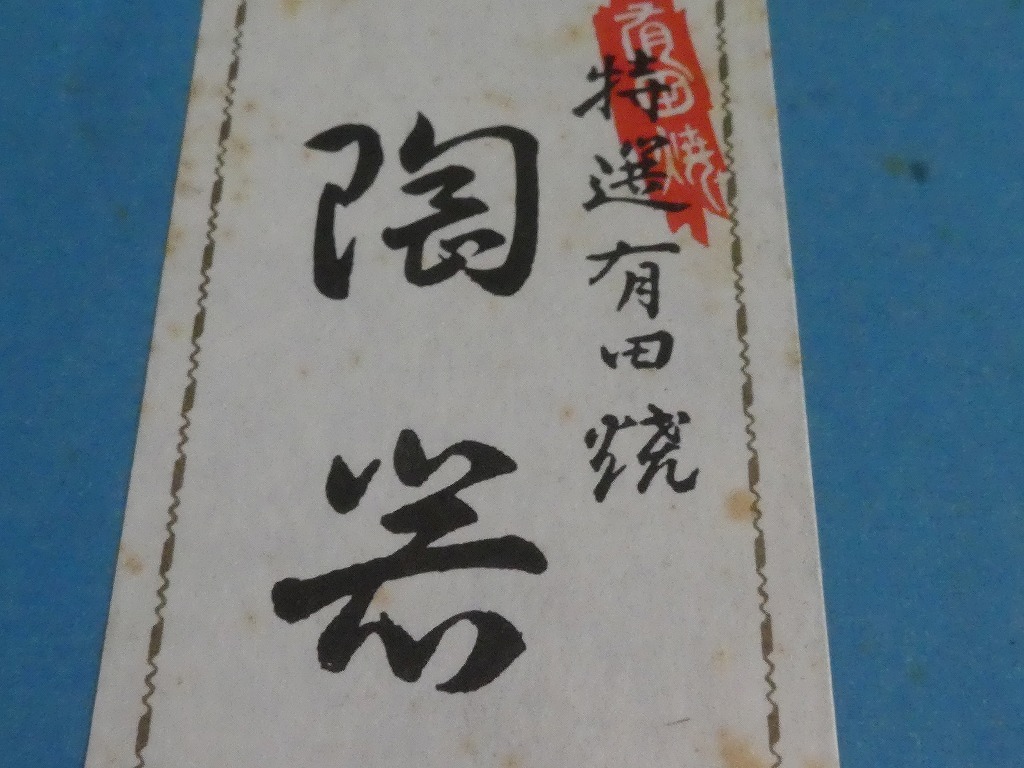 有田焼
特選有田焼
陶器